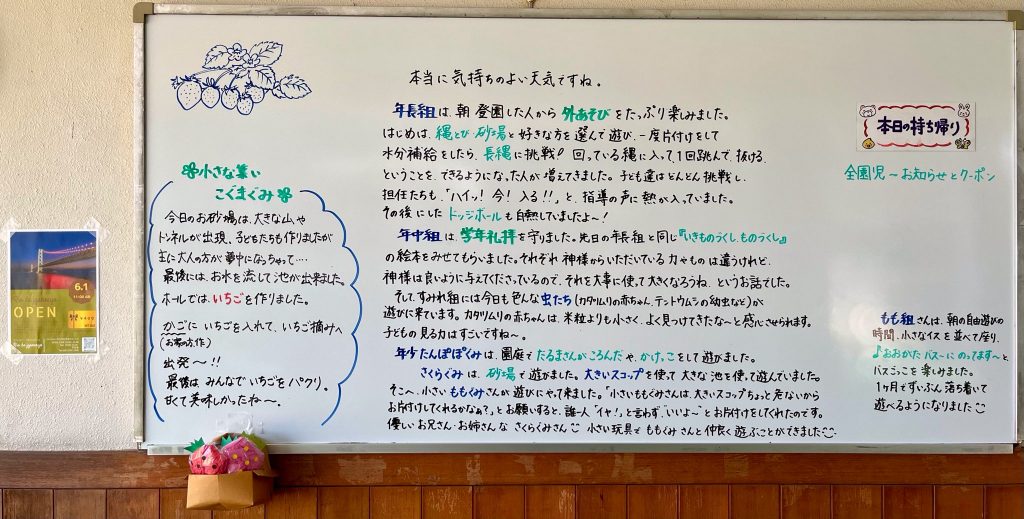 6.1
OPEN
小さな集い
こぐまぐみ
今日のお砂場は、大きな山や
トンネルが出現、子どもたちも作りましたが
主に大人の方が夢中になっちゃって‥‥
最後には、お水を流して池が出来ました。
ホールでは、いちごを作りました。
かごに いちごを入れて、いちご摘みへ
(お家の方作)
出発〜!!
最後は みんなでいちごを パクリ。
甘くて美味しかったね〜。
本当に気持ちのよい天気ですね。
年長組は、朝 登園した人から 外あそび をたっぷり楽しみました。
はじめは、縄とび・砂場と好きな方を選んで遊び、一度片付けをして
水分補給をしたら、長縄に挑戦! 回っている縄に入って、1回跳んで、抜ける、
ということを、できるようになった人が増えてきました。子ども達はどんどん挑戦し、
担任たちも、「ハイッ!今!入る!!」と、指導の声に熱が入っていました。
その後にした ドッジボール も白熱していましたよ〜!
年中組は、学年礼拝を守りました。先日の年長組と同じ『いきものづくし・ものづくし』
の絵本をみせてもらいました。それぞれ 神様からいただいている力やものは違うけれど、
神様は良いように与えてくださっているので、それを大事に使って大きくなろうね、というお話でした。
そして、すみれ組には今日も色んな虫たち(カタツムリの赤ちゃん、テントウムシの幼虫など)が
遊びに来ています。カタツムリの赤ちゃんは、米粒よりも小さく、よく見つけてきたな〜と感心させられます。
子どもの見る力はすごいですね〜。
年少たんぽぽぐみは、園庭で だるまさんがころんだや、かけっこをして遊びました。
さくらぐみは、砂場で遊びました。大きいスコップを使って 大きな池を使って遊んでいました。
そこへ、小さい ももぐみさんが遊びにやって来ました。「小さいももぐみさんは、大きいスコップちょっと危ないから
お片付けしてくれるかなぁ?」とお願いすると、誰一人「イヤ!」と言わず、「いいよ〜」とお片付けをしてくれたのです。
優しいお兄さん・お姉さんな さくらぐみさん 小さい玩具で ももぐみさんと仲良く遊ぶことができました
本日の持ち帰り
全園児〜お知らせとクーポン
もも組さんは、朝の自由遊びの
時間、小さなイスを並べて座り、
♪おおがたバス〜にのってます〜と
バスごっこを楽しみました。
1ヶ月でずいぶん落ち着いて
遊べるようになりました